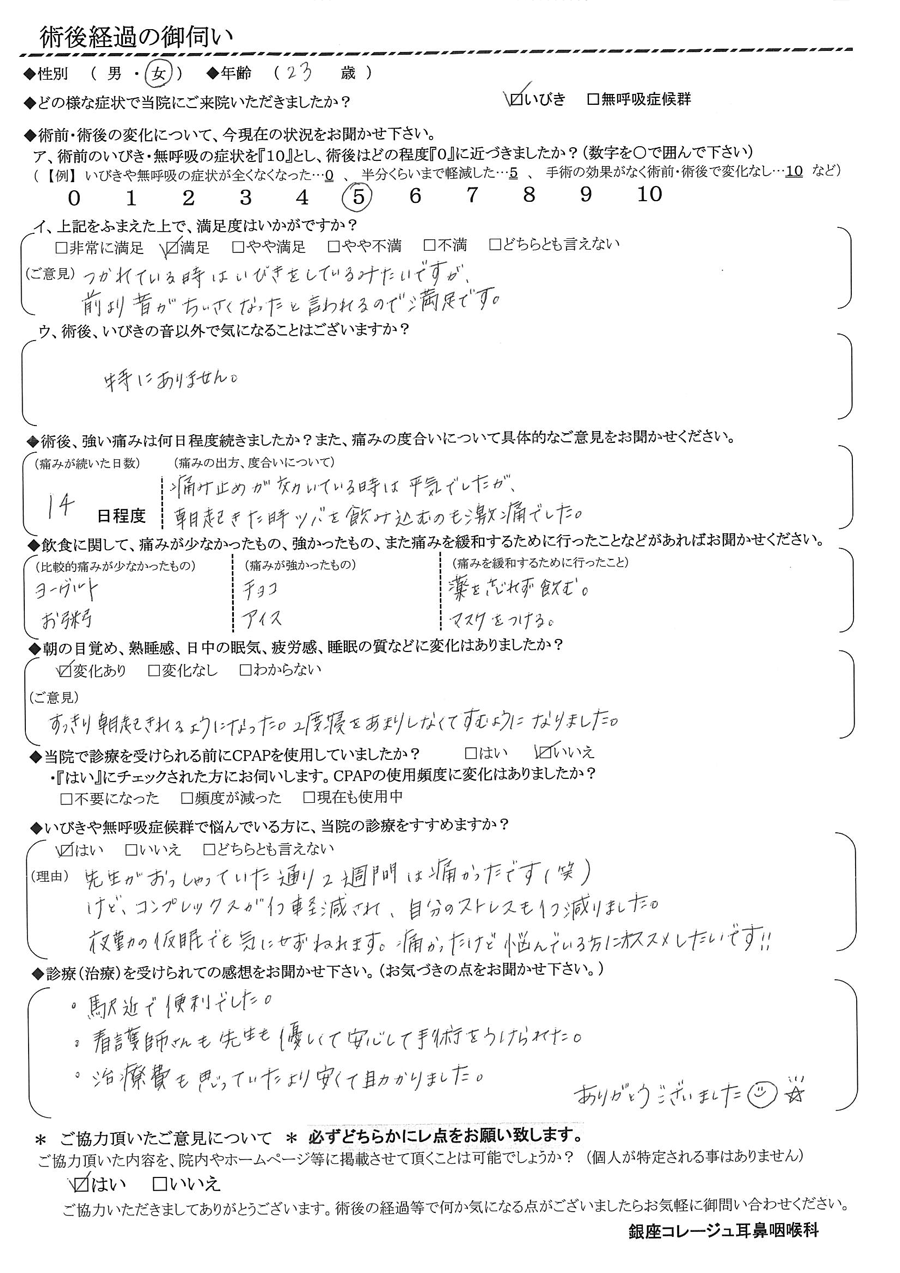 術後経過の御伺い
◆性別 ( 男 ・ 女 ) ◆年齢 ( 23 歳 )
◆どの様な症状で当院にご来院いただきましたか? ☑いびき □無呼吸症候群
◆術前・術後の変化について、今現在の状況をお聞かせ下さい。
ア、術前のいびき・無呼吸の症状を『10』とし、術後はどの程度『0』に近づきましたか?(数字を○で囲んで下さい)
(【例】いびきや無呼吸の症状が全くなくなった…0 、 半分くらいまで軽減した…5 、 手術の効果がなく術前・術後で変化なし…10 など)
0 1 2 3 4 5 6 7 8 9 10
イ、上記をふまえた上で、満足度はいかがですか?
□非常に満足 ☑満足 □やや満足 □やや不満 □不満 □どちらとも言えない
(ご意見) つかれている時はいびきをしているみたいですが、
前より音がちいさくなったと言われるので満足です。
ウ、術後、いびきの音以外で気になることはございますか?
特にありません。
◆術後、強い痛みは何日程度続きましたか?また、痛みの度合いについて具体的なご意見をお聞かせください。
(痛みが続いた日数) (痛みの出方、度合いについて)
痛み止めが効いている時は平気でしたが、
14 日程度 朝起きた時ツバを飲み込むのも激痛でした。
◆飲食に関して、痛みが少なかったもの、強かったもの、また痛みを緩和するために行ったことなどがあればお聞かせください。
(比較的痛みが少なかったもの) (痛みが強かったもの) (痛みを緩和するために行ったこと)
ヨーグルト チョコ 薬を忘れず飲む。
お粥 アイス マスクをつける。
◆朝の目覚め、熟睡感、日中の眠気、疲労感、睡眠の質などに変化はありましたか?
☑変化あり □変化なし □わからない
(ご意見)
すっきり朝起きれるようになった。2度寝をあまりしなくてすむようになりました。
◆当院で診療を受けられる前にCPAPを使用していましたか? □はい ☑いいえ
・『はい』にチェックされた方にお伺いします。CPAPの使用頻度に変化はありましたか?
□不要になった □頻度が減った □現在も使用中
◆いびきや無呼吸症候群で悩んでいる方に、当院の診療をすすめますか?
☑はい □いいえ □どちらとも言えない
(理由) 先生がおっしゃっていた通り2週間は痛かったです(笑)
けど、コンプレックスが1つ軽減され、自分のストレスも1つ減りました。
夜勤の仮眠でも気にせずねれます。痛かったけど悩んでいる方にオススメしたいです!!
◆診療(治療)を受けられての感想をお聞かせ下さい。(お気づきの点をお聞かせ下さい。)
・駅近で便利でした。
・看護師さんも先生も優しくて安心して手術をうけられた。
・治療費も思っていたより安くて助かりました。
ありがとうございました
＊ ご協力頂いたご意見について ＊ 必ずどちらかにレ点をお願い致します。
ご協力頂いた内容を、院内やホームページ等に掲載させて頂くことは可能でしょうか? (個人が特定される事はありません)
☑はい □いいえ
ご協力いただきましてありがとうございます。術後の経過等で何か気になる点がございましたらお気軽に御問い合わせください。
銀座コレージュ耳鼻咽喉科